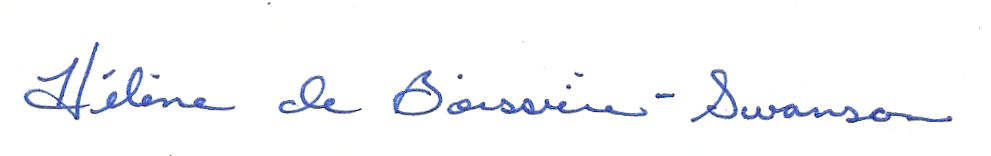 Hélène de Boissière-Swanson